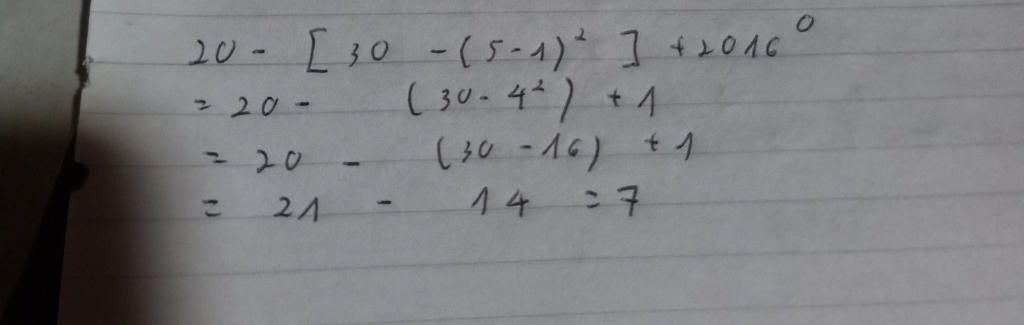 20 - [ 30 - (5-1)² ] + 2016⁰
= 20 - (30 - 4²) + 1
= 20 - (30 - 16) + 1
= 21 - 14 = 7